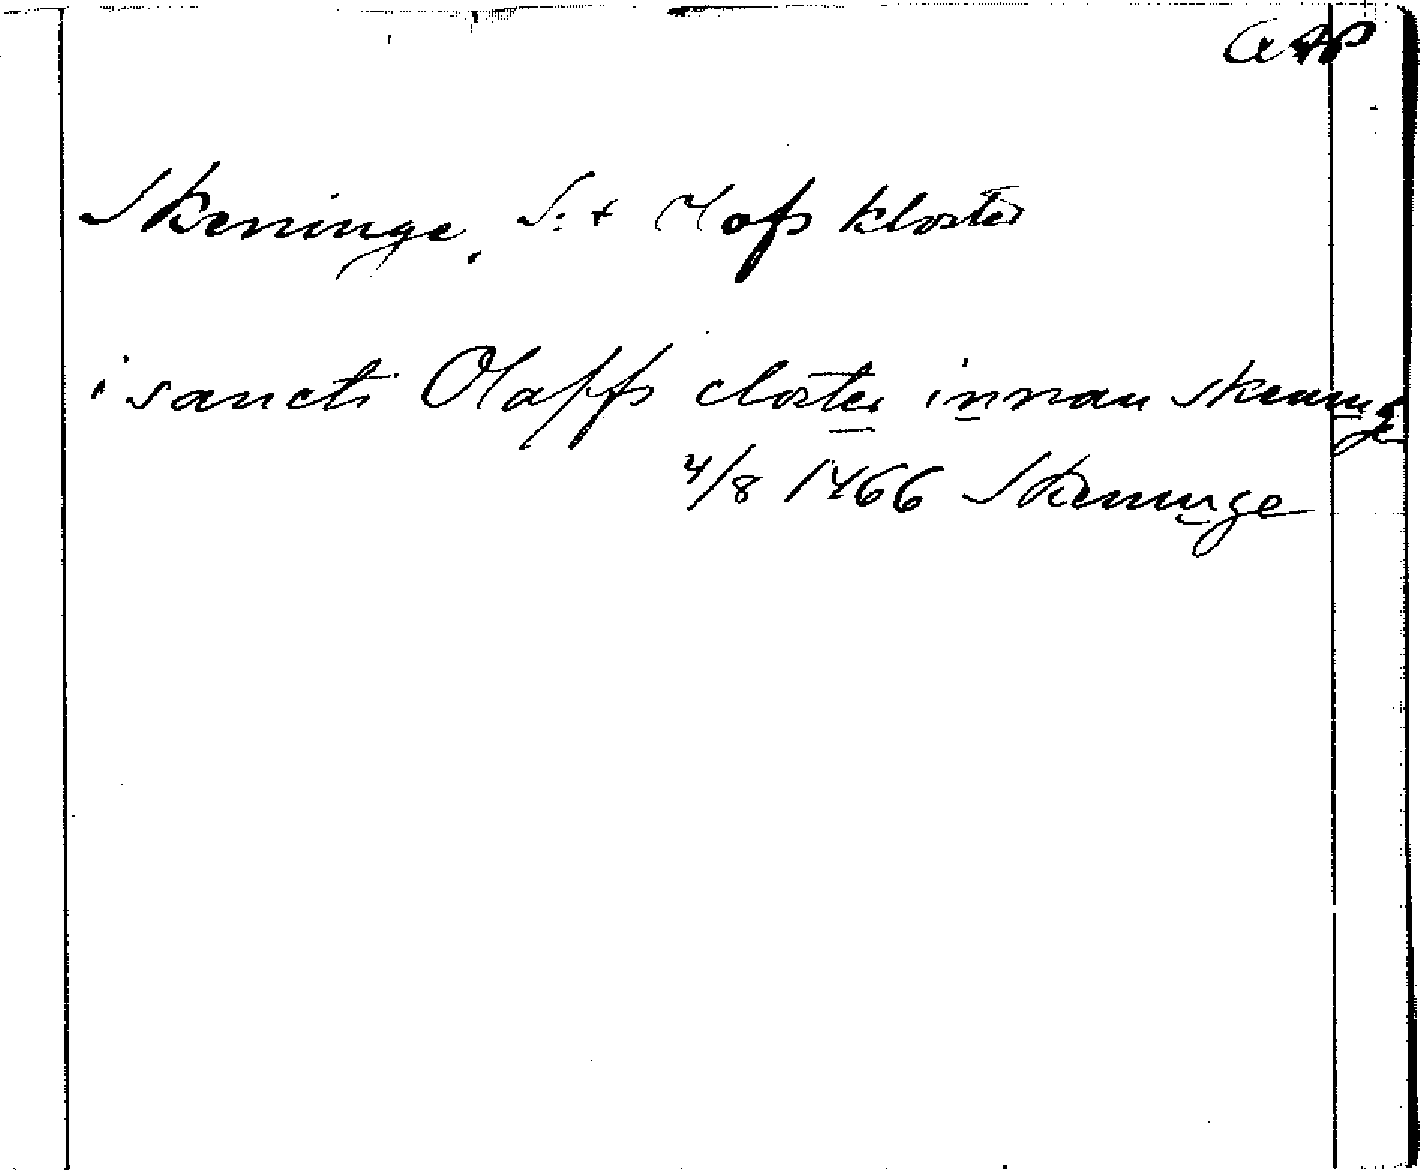 Skeninge, S:t Olofs kloster
i sancti Olaffs closter innan Skening
4/8 1466 Skeninge